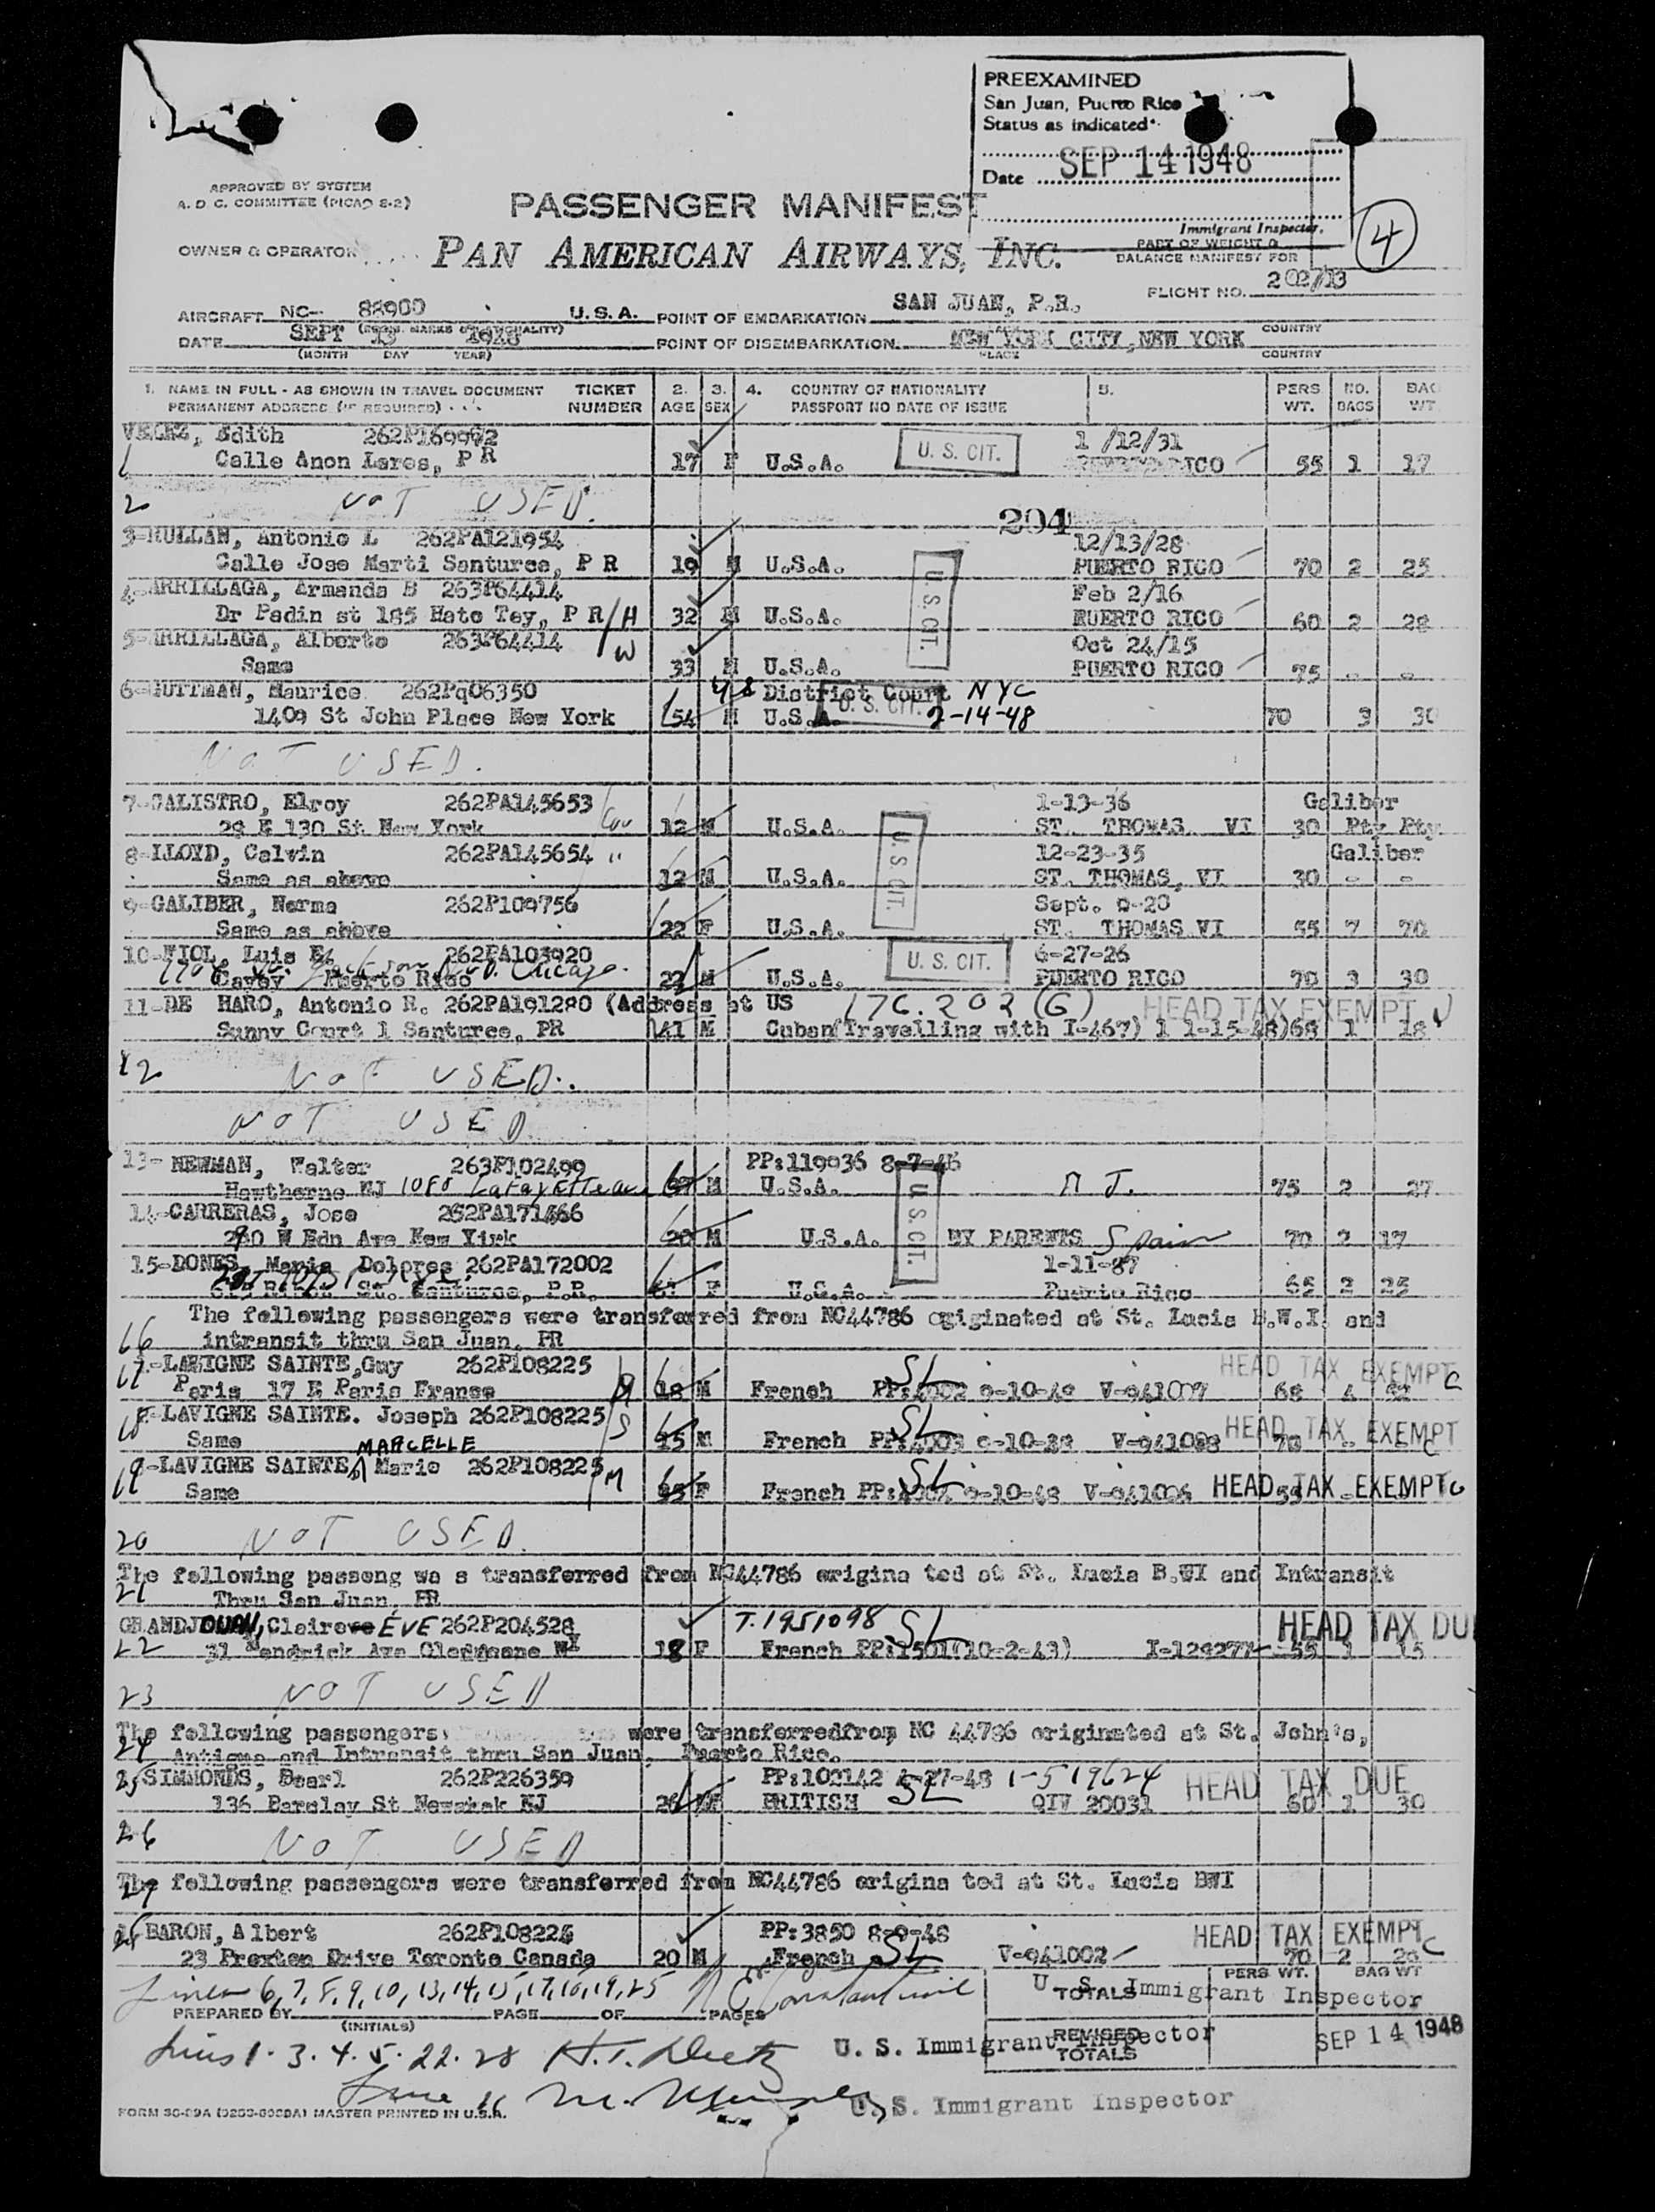 PREEXAMINED
San Juan, Puerto Rico
Status as indicated
Date SEP 14 1948
Immigrant Inspector.
APPROVED BY SYSTEM
A. D C. COMMITTEE (PICAO S-2)
PASSENGER MANIFEST
4
PART OF WEIGHT &
BALANCE MANIFEST FOR
OWNER & OPERATOR PAN AMERICAN AIRWAYS, INC.
FLIGHT NO. 202/13
AIRCRAFT NC- 88900 U. S. A. POINT OF EMBARKATION SAN JUAN, P.R.
DATE SEPT 13 1948 POINT OF DISEMBARKATION NEW YORK CITY, NEW YORK COUNTRY
(MONTH DAY YEAR) PLACE COUNTRY
1. NAME IN FULL - AS SHOWN IN TRAVEL DOCUMENT TICKET 2. 3. 4. COUNTRY OF NATIONALITY 5. PERS NO. BAG
PERMANENT ADDRESS (IF REQUIRED) NUMBER AGE SEX PASSPORT NO DATE OF ISSUE WT. BAGS WT.
VELEZ, Edith 1 /12/31
1 Calle Anon Lares, P R 17 F U.S.A. U. S. CIT. PUERTO RICO 55 1 17
2 NOT USED
204
3- Antonio L 262PA121954 12/13/28
Calle Jose Marti Santurce, P R 19 M U.S.A. U. S. CIT. PUERTO RICO 70 2 25
4-ARRILLAGA, Armanda B 263P64414 Feb 2/16
Dr Padin st 185 Hato Tey, P R H 32 M U.S.A. PUERTO RICO 60 2 28
5-ARRILLAGA, Alberto 263P64414 W Oct 24/15
Same 33 M U.S.A. PUERTO RICO 75 - -
6-GUTTMAN, Maurice 262Pq06350 US District Court NYC
1409 St John Place New York 54 M U.S.A. U. S. CIT. 2-14-48 70 3 30
NOT USED.
7-GALISTRO, Elroy 262PA145653 1-13-36 Galiber
28 E 130 St New York 12 M U.S.A. U. S. CIT. ST. THOMAS VI 30 Pty Pty
8-LLOYD, Calvin 262PA145654 " 12-23-35 Galiber
Same as above 12 M U.S.A. ST. THOMAS, VI 30 - -
9-GALIBER, Norma 262P109756 Sept. 9-20
Same as above 22 F U.S.A. ST. THOMAS VI 55 7 70
10-FIOL, Luis E. 262PA103920 6-27-26
Cayey Puerto Rico Chicago. 22 M U.S.A. U. S. CIT. PUERTO RICO 70 3 30
11-DE HARO, Antonio R. 262PA191280 (Address at US 176.202 (G) HEAD TAX EXEMPT
Sunny Court 1 Santurce, PR 41 M Cuban(Travelling with I-467) 1 1-15-48)68 1 18
12 NOT USED.
NOT USED
13- NEWMAN, Walter 263P102499 PP:119036 8-7-46
Hawthorne NJ 1085 Lafayette ave M U.S.A. U. S. CIT. N J. 75 2 27
14-CARRERAS, Jose 262PA171466
280 W Edn Ave New Yirk 20 M U.S.A. BY PARENTS Spain 70 2 17
15-DONES, Maria Dolores 262PA172002 1-11-87
St. Santurce, P.R. F U.S.A. Puerto Rico 65 2 25
The following passengers were transferred from NC44786 originated at St. Lucia B.W.I. and
16 intransit thru San Juan, PR
17-LAVIGNE SAINTE,Guy 262P108225 SL HEAD TAX EXEMPT C
Paris 17 E Paris France 18 M French PP:4002 9-10-48 V-941007 68 4
18-LAVIGNE SAINTE. Joseph 262P108225 S SL HEAD TAX EXEMPT
Same 45 M French PP:4003 V-941008 70 C
MARCELLE
19-LAVIGNE SAINTE, Marie 262P108225 M SL
Same F French PP: 9-10-48 V-941006 HEAD TAX EXEMPT C
20 NOT USED.
The following passeng wa s transferred from NC44786 origina ted at St. Lucia B.WI and Intransit
21 Thru San Juan, PR
GRANDJOUAN, Claire EVE 262P204528 T.1951098 SL HEAD TAX DUE
22 31 Kendrick Ave NY 18 F French PP:1501(10-2-43) I-129277 55 1 15
23 NOT USED
The following passengers were transferredfrom NC 44786 originated at St. John's,
24 Antigua and Intransit thru San Juan, Puerto Rico.
25 SIMMONDS, Pearl 262P226359 PP:102142 4-27-48 1-519624 HEAD TAX DUE
136 Barclay St Newakak NJ 26 F BRITISH SL QIV 20031 60 1 30
26 NOT USED
The following passengers were transferred from NC44786 origina ted at St. Lucia BWI
27
28 BARON, Albert PP:3850 8-9-48 HEAD TAX EXEMPT C
23 Prexten Drive Toronto Canada 20 M French SL V-941002 70 2 20
Lines 6,7,8,9,10,13,14,15,17,18,19,25
U. S. Immigrant Inspector
TOTALS PERS WT. BAG WT
PREPARED BY PAGE OF PAGES
(INITIALS)
Lines 1. 3. 4. 5. 22. 28 H.T. U. S. Immigrant Inspector
REVISED TOTALS SEP 14 1948
Line M. U. S. Immigrant Inspector
FORM MASTER PRINTED IN U.S.A.